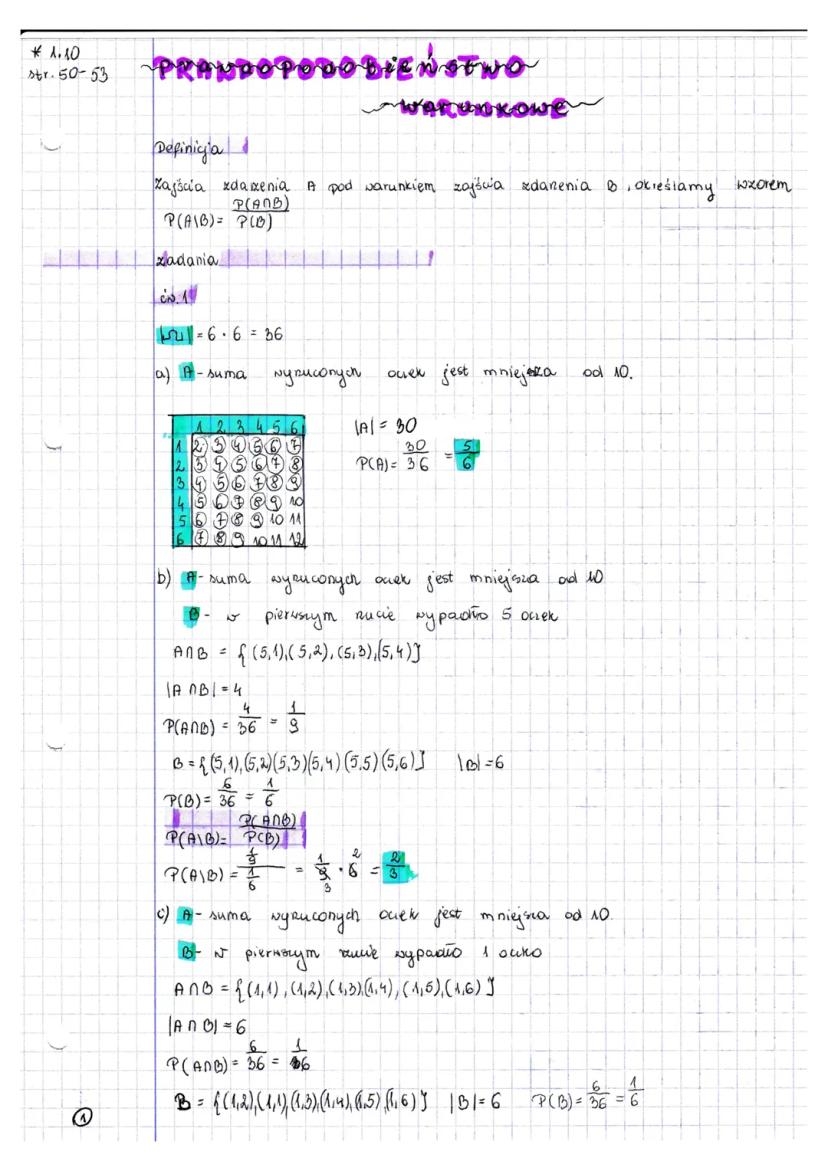 * 1.10
str. 50-53
PRAWDOPODOBIEŃSTWO
WARUNKOWE
Definicja
Zajścia zdarzenia A pod warunkiem zajścia zdarzenia B, określamy wzorem
P(A\B) = P(A∩B) / P(B)
zadania
ćw. 1
|Ω| = 6 · 6 = 36
a) A - suma wyrzuconych oczek jest mniejsza od 10.
1 2 3 4 5 6
1 2 3 4 5 6 7
2 3 4 5 6 7 8
3 4 5 6 7 8 9
4 5 6 7 8 9 10
5 6 7 8 9 10 11
6 7 8 9 10 11 12
|A| = 30
P(A) = 30/36 = 5/6
b) A - suma wyrzuconych oczek jest mniejsza od 10
B - w pierwszym rzucie wypadło 5 oczek
A∩B = { (5,1), (5,2), (5,3), (5,4)}
|A∩B| = 4
P(A∩B) = 4/36 = 1/9
B = {(5,1), (5,2) (5,3) (5,4) (5,5) (5,6)} |B| = 6
P(B) = 6/36 = 1/6
P(A\B) = P(A∩B) / P(B)
P(A\B) = 1/9 / 1/6 = 1/9 3 · 6 2 = 2/3
c) A - suma wyrzuconych oczek jest mniejsza od 10.
B - w pierwszym rzucie wypadło 1 oczko
A∩B = {(1,1), (1,2), (1,3), (1,4), (1,5), (1,6)}
|A∩B| = 6
P(A∩B) = 6/36 = 1/6
B = {(1,2), (1,1), (1,3), (1,4), (1,5), (1,6)} |B| = 6 P(B) = 6/36 = 1/6
1